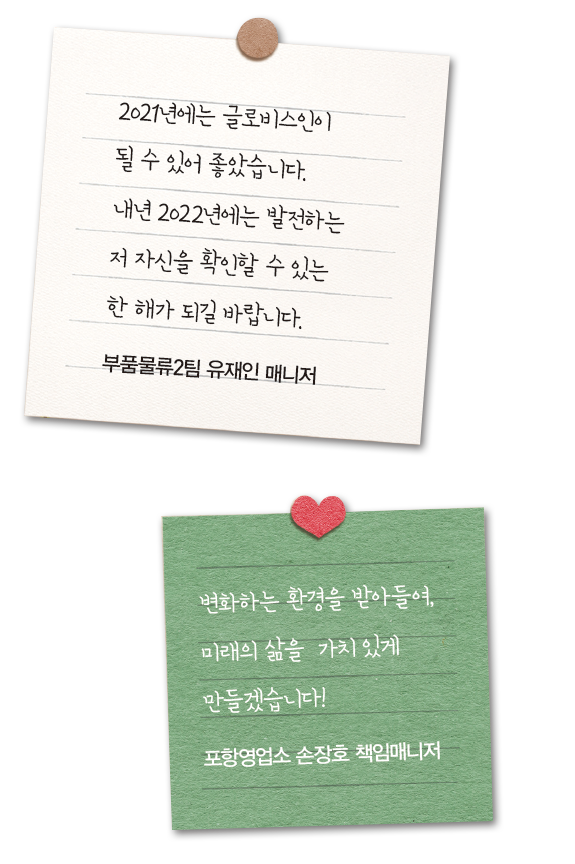 2021년에는 글로비스인이
될 수 있어 좋았습니다.
내년 2022년에는 발전하는
저 자신을 확인할 수 있는
한 해가 되길 바랍니다.
부품물류2팀 유재인 매니저
변화하는 환경을 받아들여,
미래의 삶을 가치 있게
만들겠습니다!
포항영업소 손장호 책임매니저